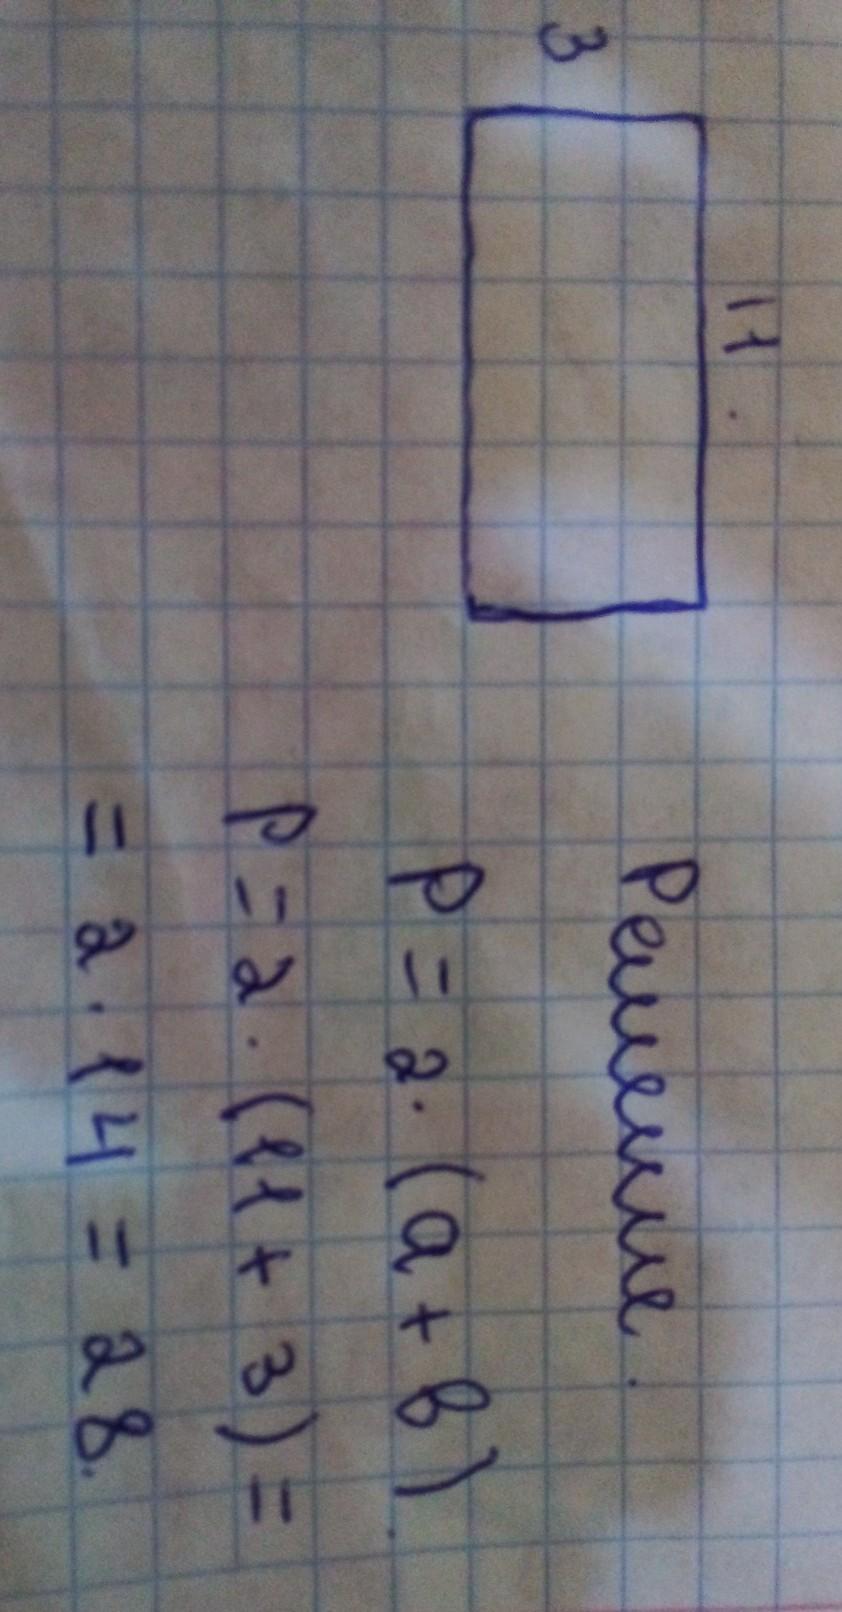 11.
3
Решение.
P = 2·(a + b).
P = 2·(11 + 3) =
= 2·14 = 28.